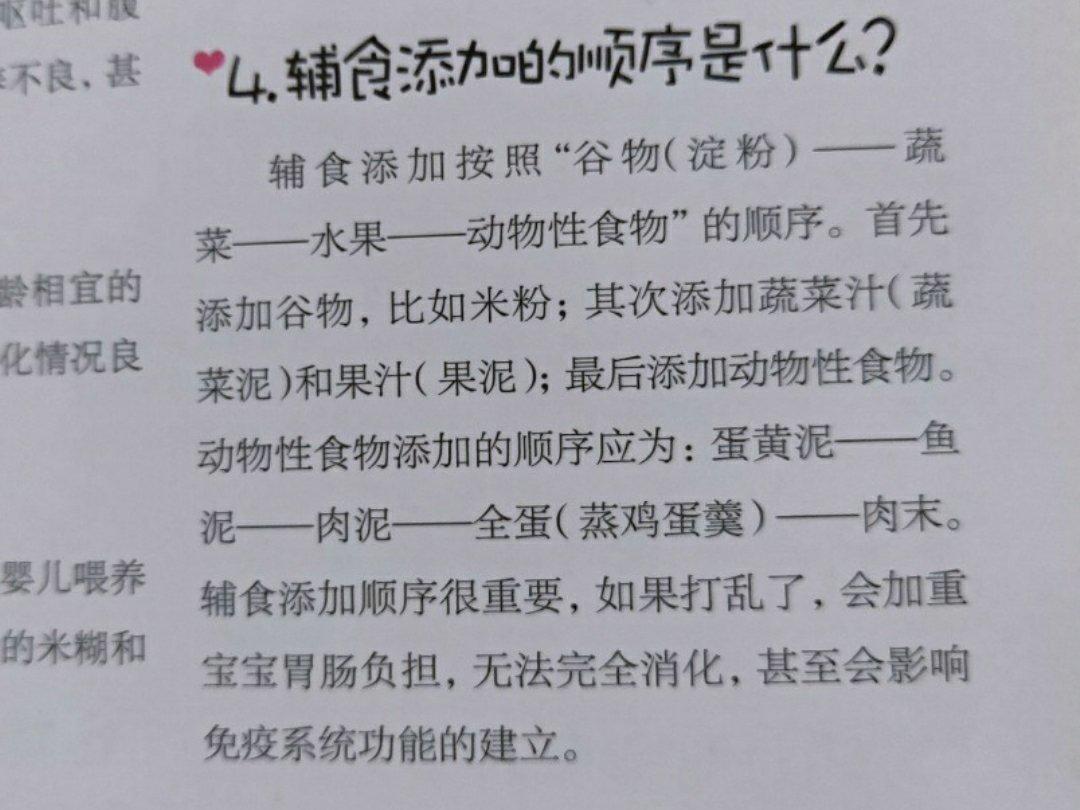 呕吐和腹
不良，甚
龄相宜的
化情况良
婴儿喂养
的米糊和
4.辅食添加的顺序是什么?
辅食添加按照“谷物(淀粉)——蔬
菜——水果——动物性食物”的顺序。首先
添加谷物，比如米粉；其次添加蔬菜汁(蔬
菜泥)和果汁(果泥)；最后添加动物性食物。
动物性食物添加的顺序应为：蛋黄泥——鱼
泥——肉泥——全蛋(蒸鸡蛋羹)——肉末。
辅食添加顺序很重要，如果打乱了，会加重
宝宝胃肠负担，无法完全消化，甚至会影响
免疫系统功能的建立。